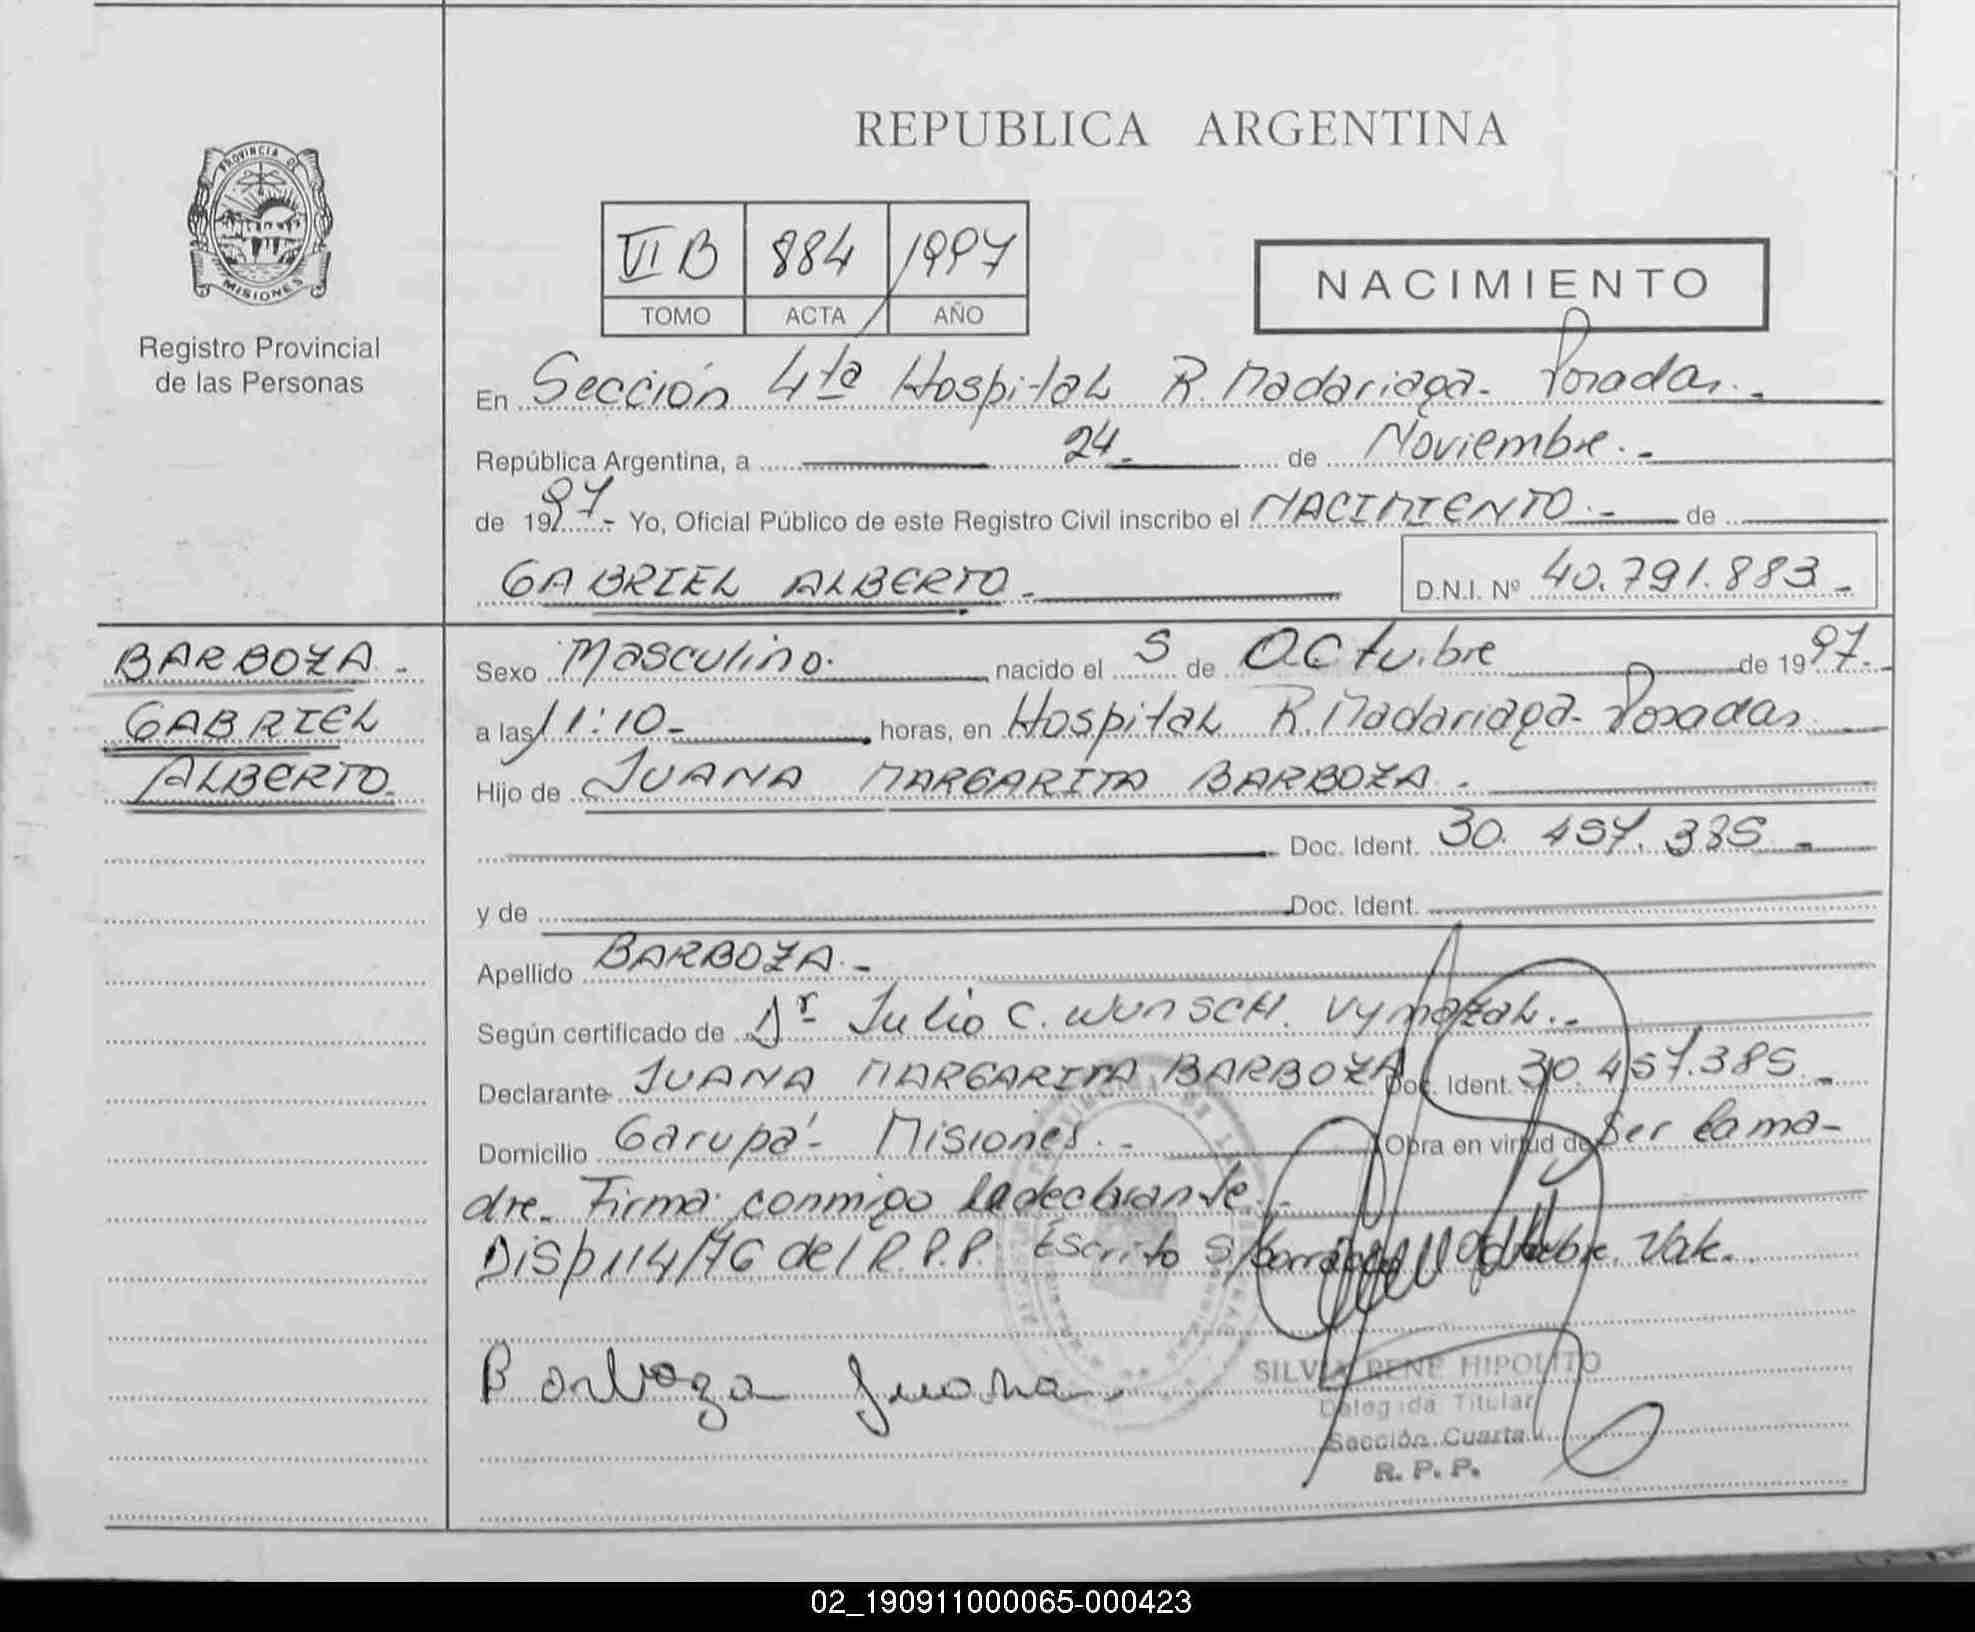 REPUBLICA ARGENTINA
PROVINCIA DE
MISIONES
Registro Provincial
de las Personas
VI B 884 1997
TOMO ACTA AÑO
NACIMIENTO
En Sección 4ta Hospital R. Madariaga - Posadas.-
República Argentina, a 24.- de Noviembre.-
de 1997.- Yo, Oficial Público de este Registro Civil inscribo el NACIMIENTO.- de
GABRIEL ALBERTO.- D.N.I. Nº 40.791.883.-
BARBOZA.-
GABRIEL
ALBERTO.
Sexo Masculino. nacido el 5 de Octubre de 1997.-
a las 11:10.- horas, en Hospital R. Madariaga - Posadas
Hijo de JUANA MARGARITA BARBOZA.-
Doc. Ident. 30.457.385.-
y de Doc. Ident.
Apellido BARBOZA.-
Según certificado de Dr. Julio C. Wunsch. Vymazal.-
Declarante JUANA MARGARITA BARBOZA Doc. Ident. 30.457.385.-
Domicilio Garupá - Misiones.- Obra en virtud de Ser la ma-
dre. Firma conmigo la declarante.-
Disp 114/76 del R.P.P. Escrito s/borrado Octubre. Vale.
Barboza Juana
SILVIA RENE HIPOLITO
Delegada Titular
Sección Cuarta
R. P. P.
02_190911000065-000423